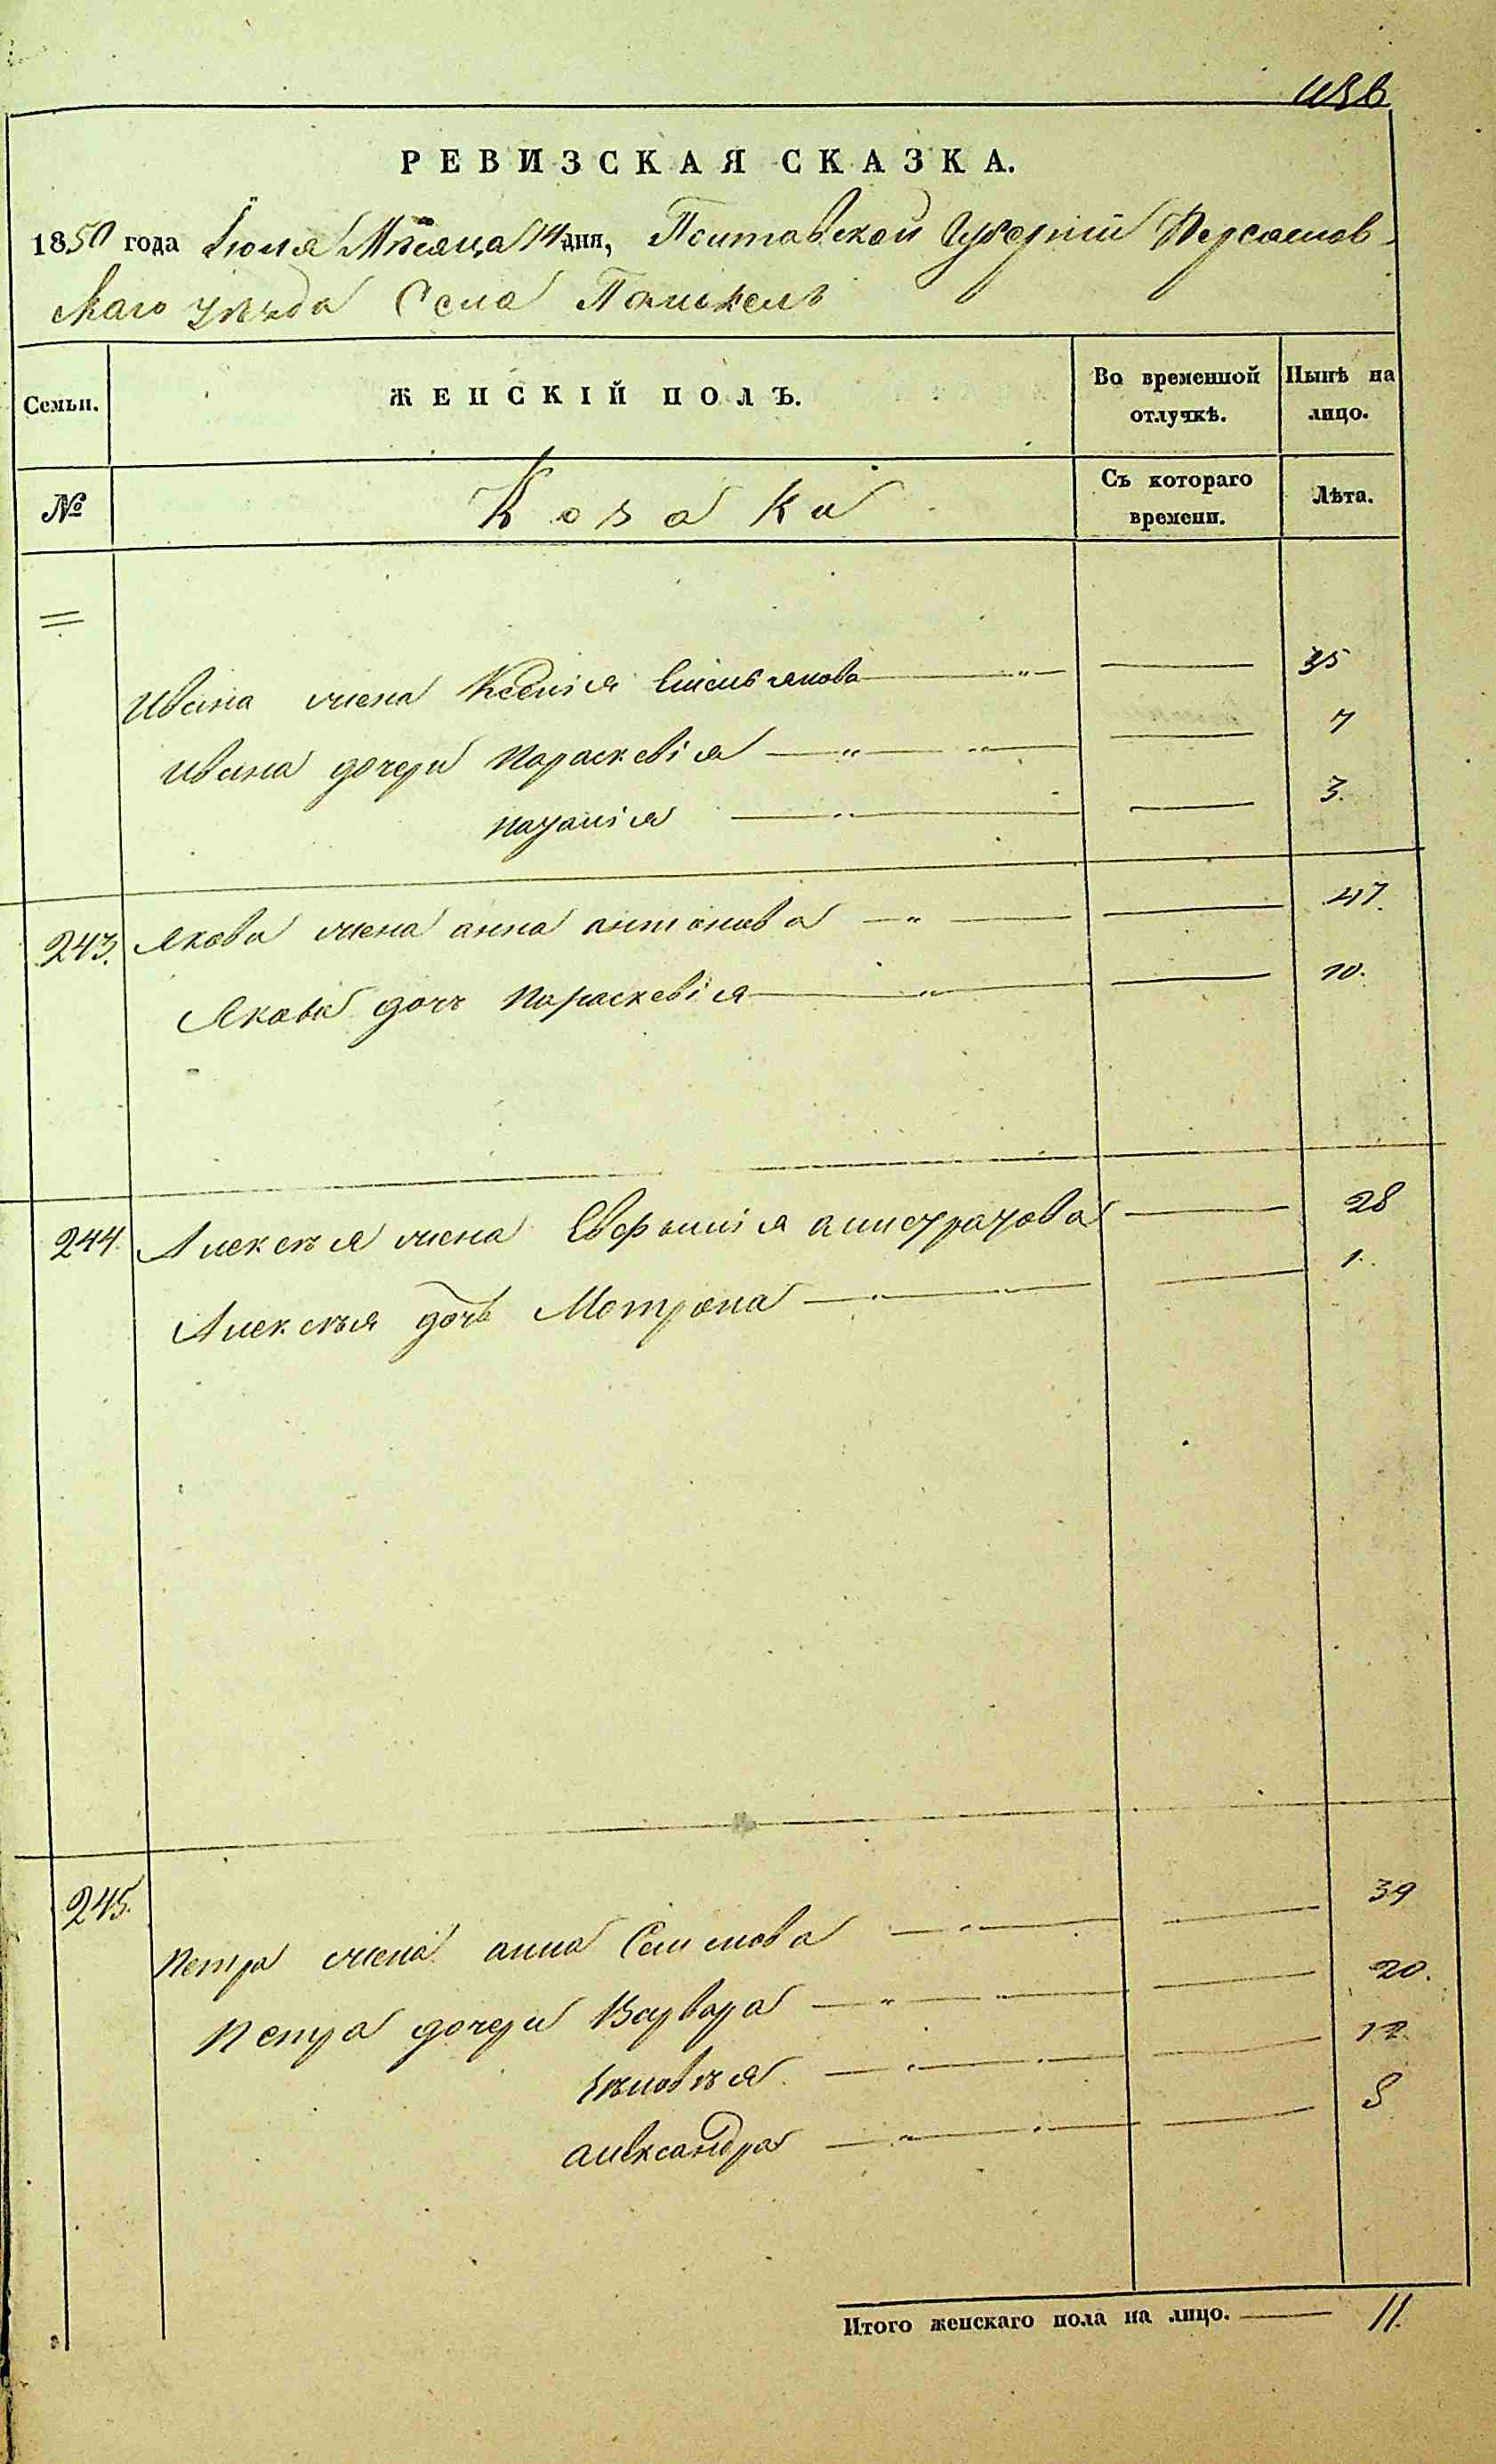 РЕВИЗСКАЯ СКАЗКА.
1850 года Іюля Мѣсяца 14 дня, Полтавской Губерніи Переяслов-
скаго уѣзда Села
Семьи. ЖЕНСКІЙ ПОЛЪ. Во временной отлучкѣ. Нынѣ на лицо.
№ Козаки Съ котораго времени. Лѣта.
Ивана жена Ксенія Емельянова 35
Ивана дочери Параскевія 7
3.
243. Якова жена анна антонова 47.
Якова дочь Параскевія 10.
244. Алексѣя жена Евфимія 28
Алексѣя дочь Мотрона 1.
245. Петра жена анна Семенова 39
Петра дочери Варвара 20.
12.
александра 8
Итого женскаго пола на лицо. 11.